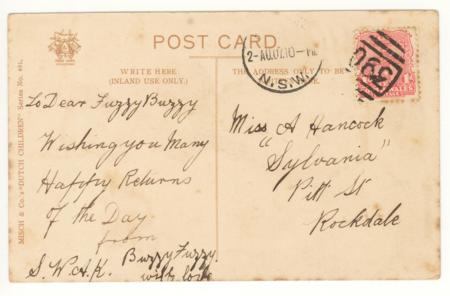 POST CARD
WRITE HERE
(INLAND USE ONLY.)
THE ADDRESS ONLY TO BE
MISCH & Co's "DUTCH CHILDREN" Series No. 401.
N.S.W.
390
To Dear Fuzzy Buzzy
Wishing you Many
Happy Returns
of the Day
from
Buzzy Fuzzy.
S.W.A.K. with love
Miss A Hancock
"Sylvania"
Pitt St
Rockdale